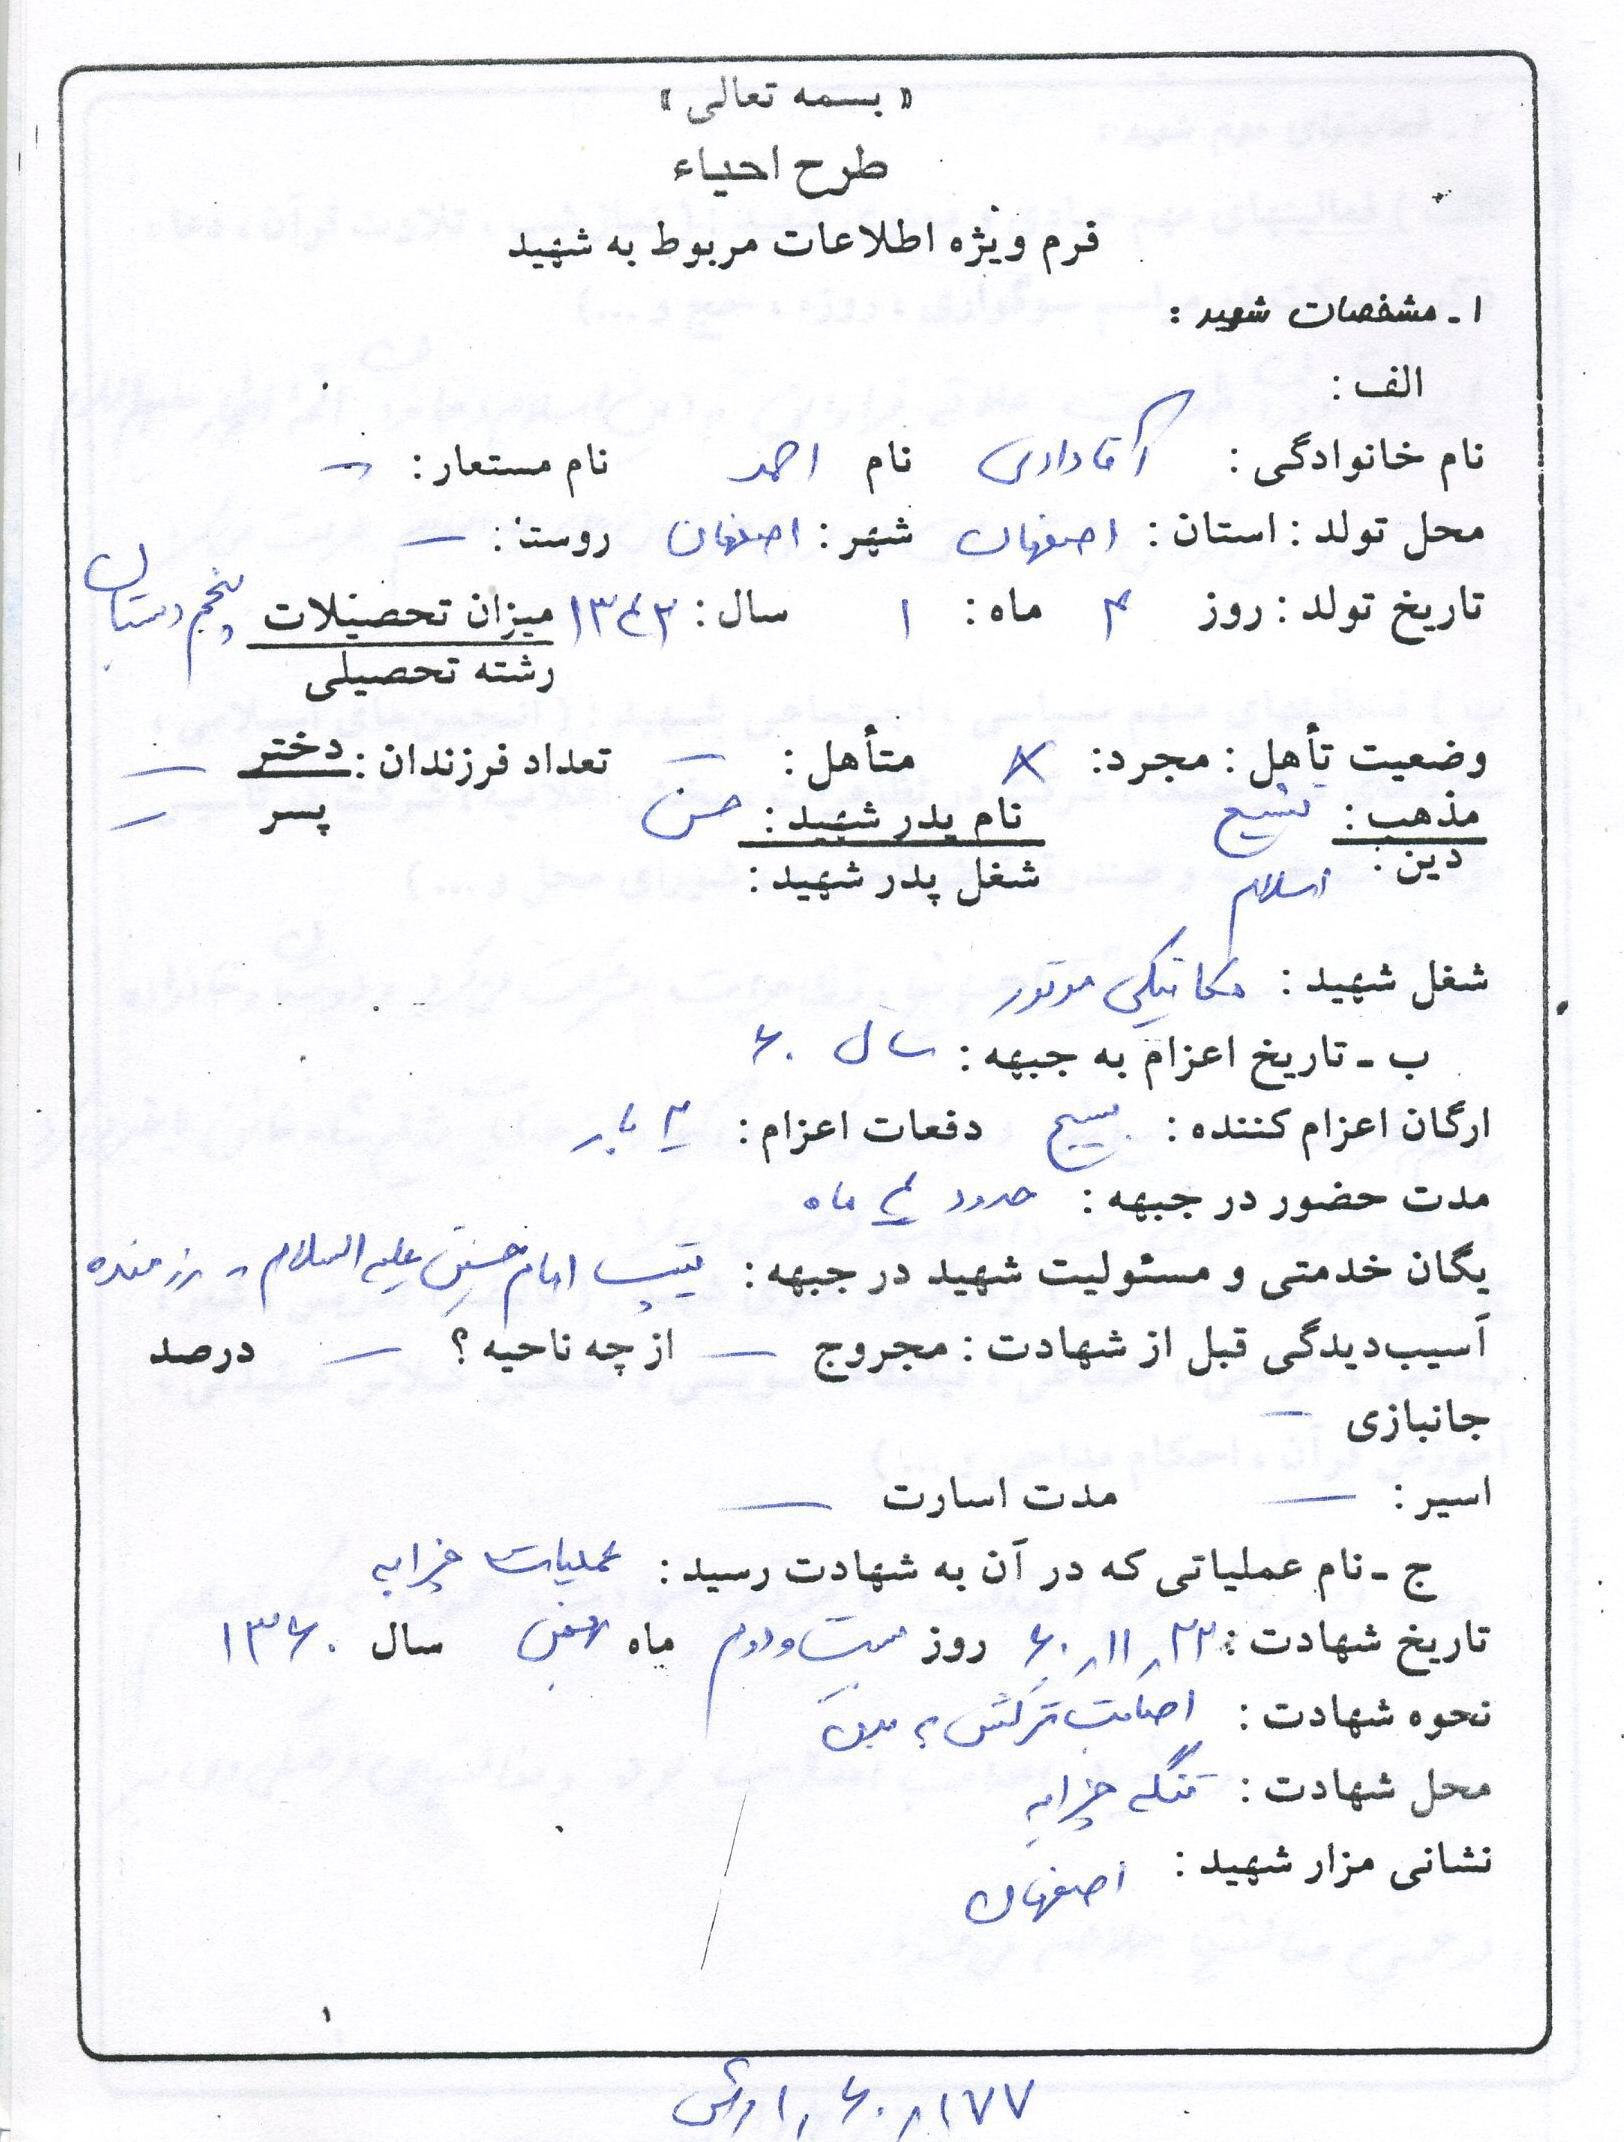 « بسمه تعالی »
طرح احیاء
فرم ویژه اطلاعات مربوط به شهید
۱ـ مشخصات شهید :
الف :
نام خانوادگی : آقادادی نام احمد نام مستعار : –
محل تولد : استان : اصفهان شهر : اصفهان روستا : –
تاریخ تولد : روز ۴ ماه : ۱ سال : ۱۳۴۲ میزان تحصیلات پنجم دبستان
رشته تحصیلی
وضعیت تأهل : مجرد : × متأهل : – تعداد فرزندان : دختر –
مذهب : تشیع نام پدر شهید : حسن پسر –
دین : اسلام شغل پدر شهید :
شغل شهید : مکانیکی موتور
ب ـ تاریخ اعزام به جبهه : سال ۶۰
ارگان اعزام کننده : بسیج دفعات اعزام : ۲ بار
مدت حضور در جبهه : حدود ۴ ماه
یگان خدمتی و مسئولیت شهید در جبهه : تیپ امام حسین علیه السلام - رزمنده
آسیب‌دیدگی قبل از شهادت : مجروح – از چه ناحیه ؟ – درصد
جانبازی –
اسیر : – مدت اسارت –
ج ـ نام عملیاتی که در آن به شهادت رسید : عملیات چزابه
تاریخ شهادت : ۶۰/۱۱/۲۲ روز بیست و دوم ماه بهمن سال ۱۳۶۰
نحوه شهادت : اصابت ترکش به بدن
محل شهادت : تنگه چزابه
نشانی مزار شهید : اصفهان
۱